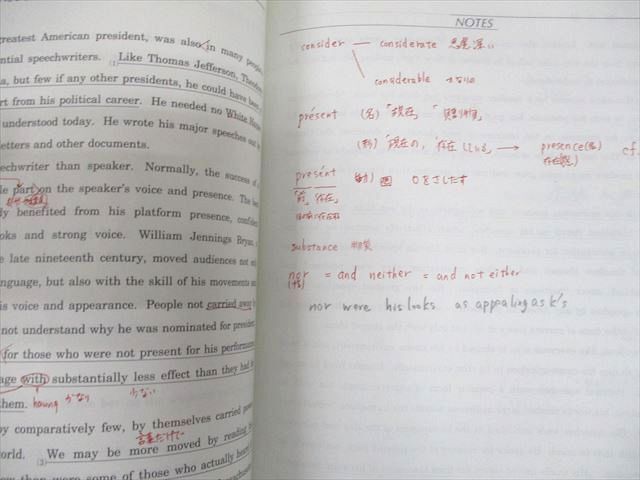 greatest American president, was also in many people
ential speechwriters. (1) Like Thomas Jefferson,
but few if any other presidents, he could have been
rt from his political career. He needed no White House
understood today. He wrote his major speeches out
etters and other documents.
echwriter than speaker. Normally, the success of
le part on the speaker's voice and presence. The
ly benefited from his platform presence,
oks and strong voice. William Jennings Bryan,
e late nineteenth century, moved audiences not
nguage, but also with the skill of his movements
is voice and appearance. People not carried away
not understand why he was nominated for president
for those who were not present for his performance
age with substantially less effect than they had
hem. having かなり 少ない
by comparatively few, by themselves carried
言葉だけで
orld. (3) We may be more moved by reading
than were some of those who actually heard
NOTES
consider — considerate 思慮深い
considerable かなりの
présent (名)「現在」「贈り物」
(形)「現在の」「存在している」 → presence(名) cf.
存在感
presént (動) 囲 Oをさしだす
「前」「存在」
substance 物質
nor = and neither = and not either
(接)
nor were his looks as appealing as k's